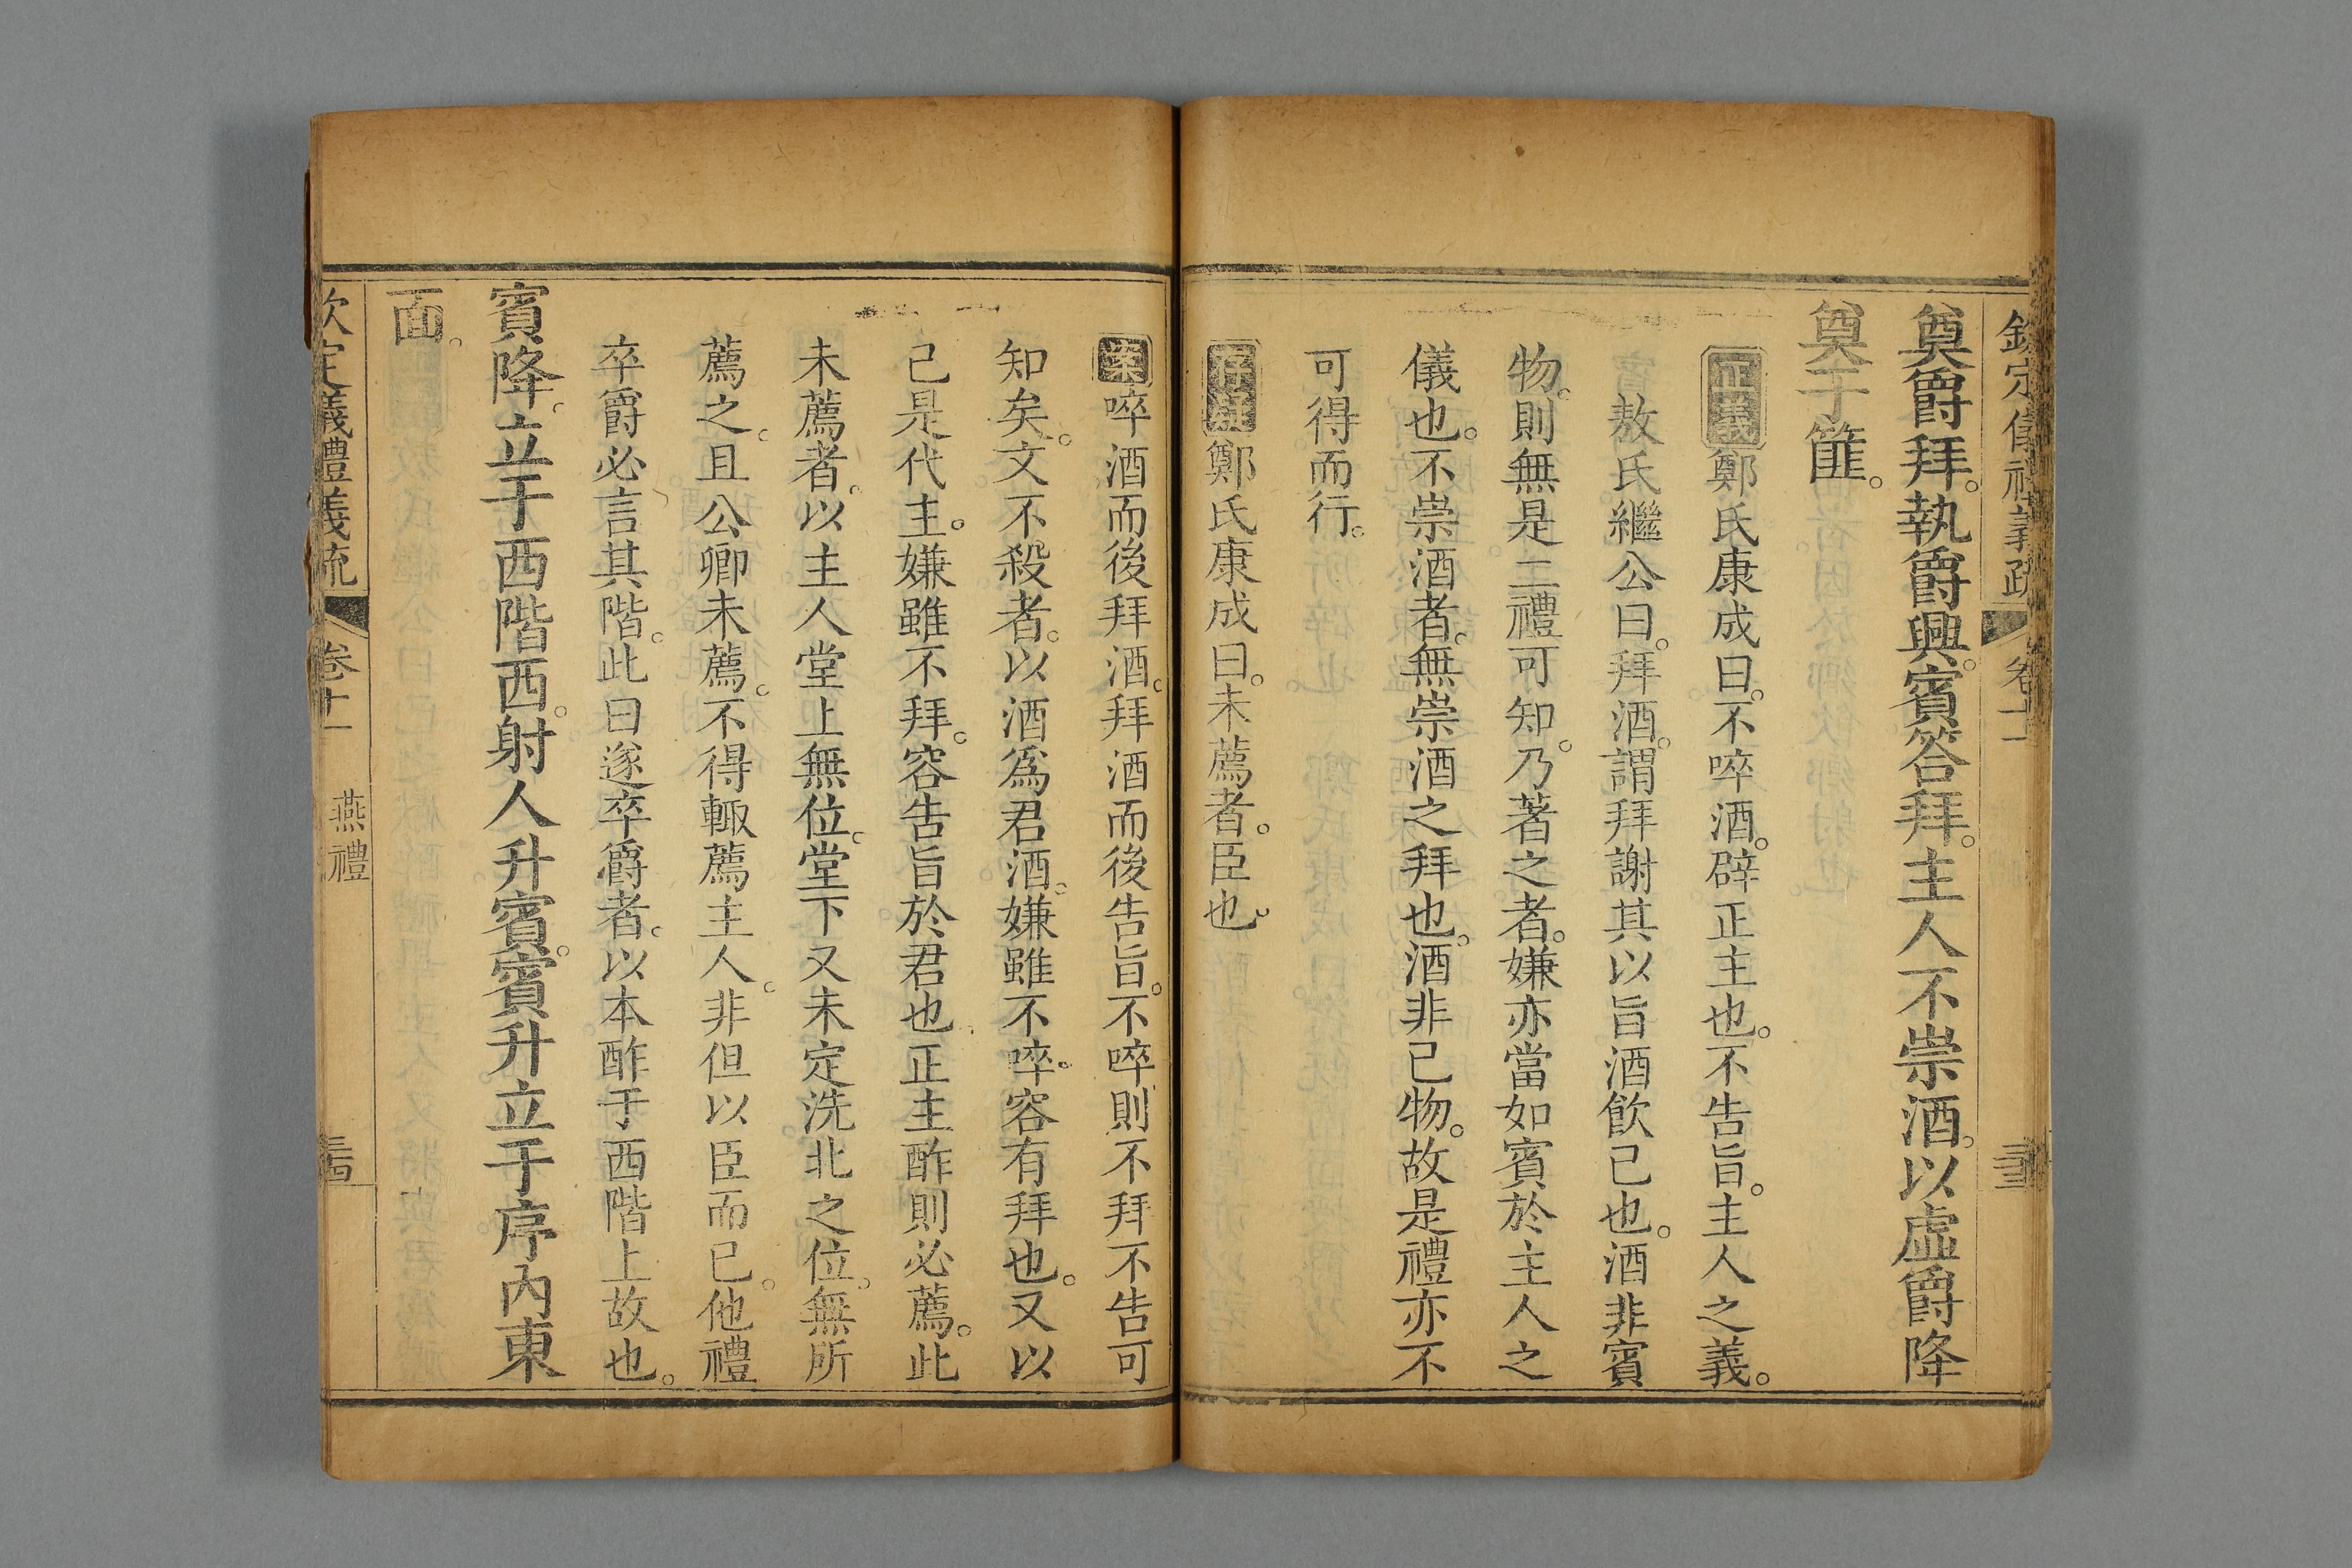 欽定儀禮義疏 卷十一
奠爵拜。執爵興。賓答拜。主人不崇酒。以虛爵降
奠于篚。
正義鄭氏康成曰。不啐酒。辟正主也。不告旨。主人之義。
敖氏繼公曰。拜酒。謂拜謝其以旨酒飲己也。酒非賓
物。則無是二禮可知。乃著之者。嫌亦當如賓於主人之
儀也。不崇酒者。無崇酒之拜也。酒非己物。故是禮亦不
可得而行。
存疑鄭氏康成曰。未薦者。臣也。
案啐酒而後拜酒。拜酒而後告旨。不啐則不拜不告可
知矣。文不殺者。以酒爲君酒。嫌雖不啐。容有拜也。又以
己是代主。嫌雖不拜。容告旨於君也正主酢則必薦。此
未薦者。以主人堂上無位。堂下又未定洗北之位。無所
薦之。且公卿未薦。不得輒薦主人。非但以臣而已。他禮
卒爵必言其階。此曰遂卒爵者。以本酢于西階上故也。
賓降。立于西階西。射人升賓。賓升立于序內東
面。
欽定儀禮義疏 卷十一 燕禮 三四